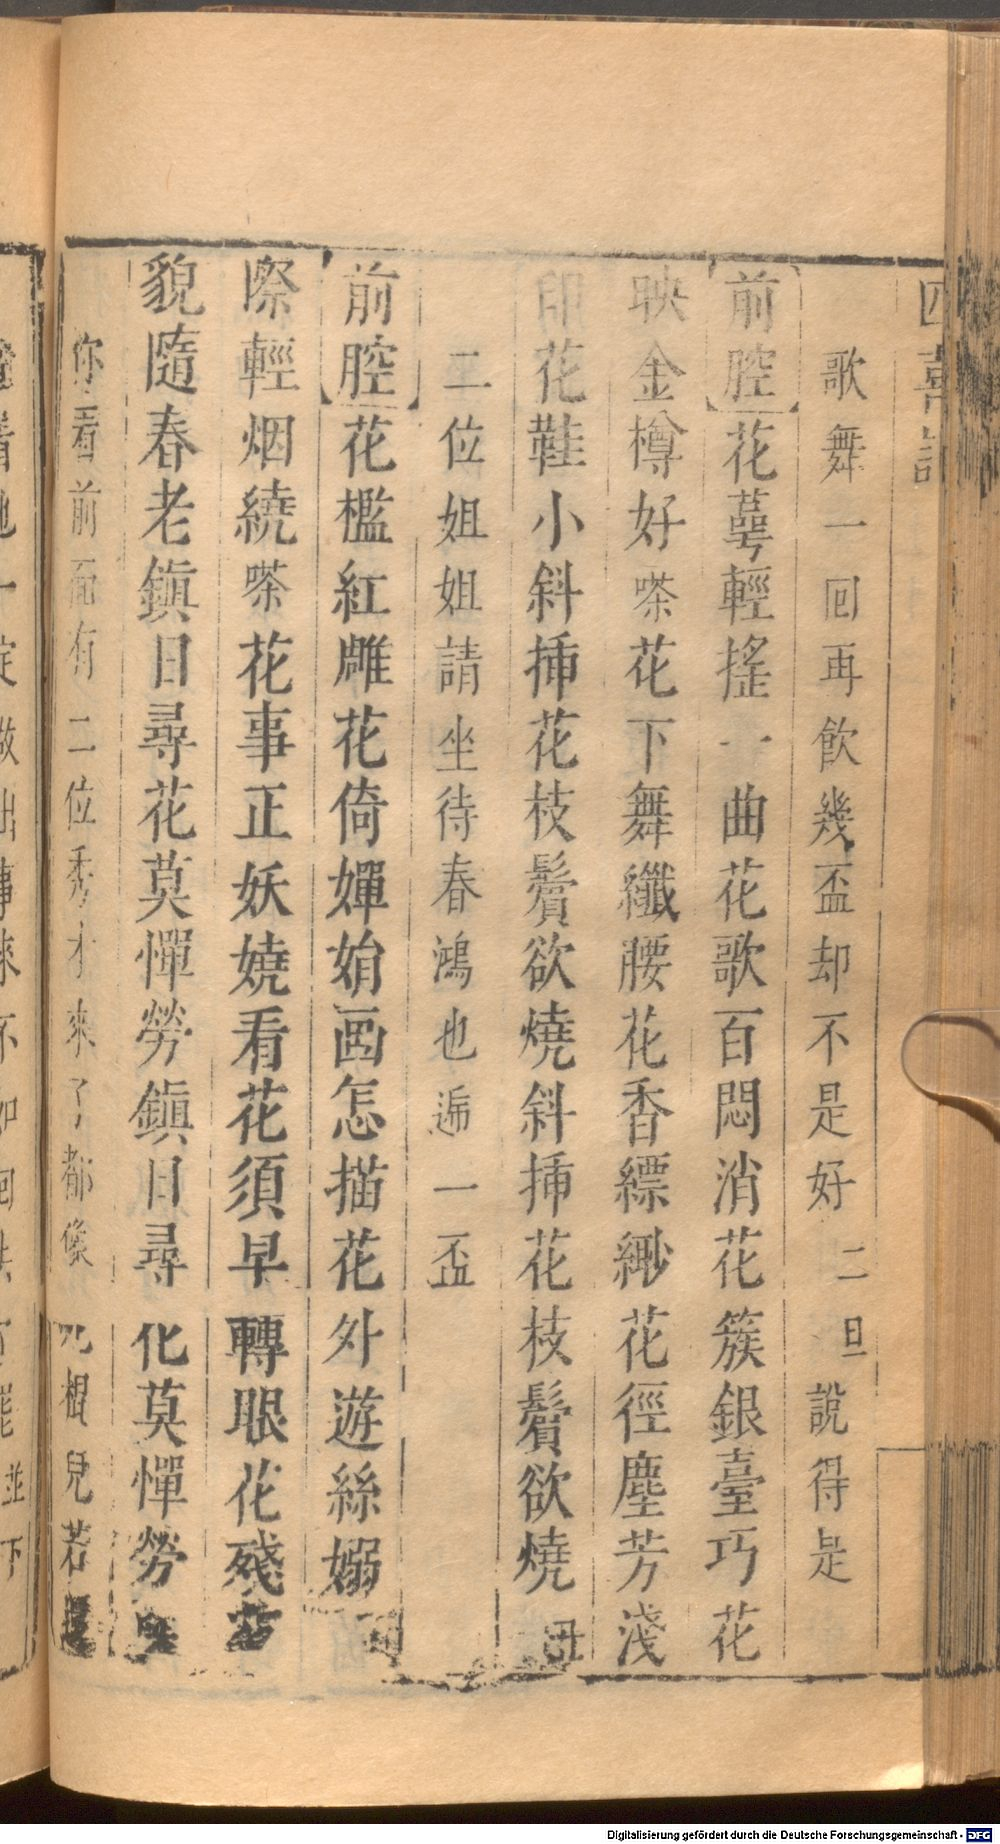 四喜記
歌舞一回再飲幾盃却不是好 二旦 說得是
前腔 花蕚輕搖一曲花歌百悶消花簇銀臺巧花
映金樽好嗏花下舞纖腰花香縹緲花徑塵芳淺
印花鞋小斜揷花枝鬢欲燒斜揷花枝鬢欲燒 丑
二位姐姐請坐待春鴻也遞一盃
前腔 花檻紅雕花倚嬋娟畫怎描花外遊絲嫋
際輕烟繞嗏花事正妖嬈看花須早轉眼花殘
貌隨春老鎮日尋花莫憚勞鎮日尋花莫憚勞
你看前面有二位秀才來了都像 根兒若
Digitalisierung gefördert durch die Deutsche Forschungsgemeinschaft - DFG